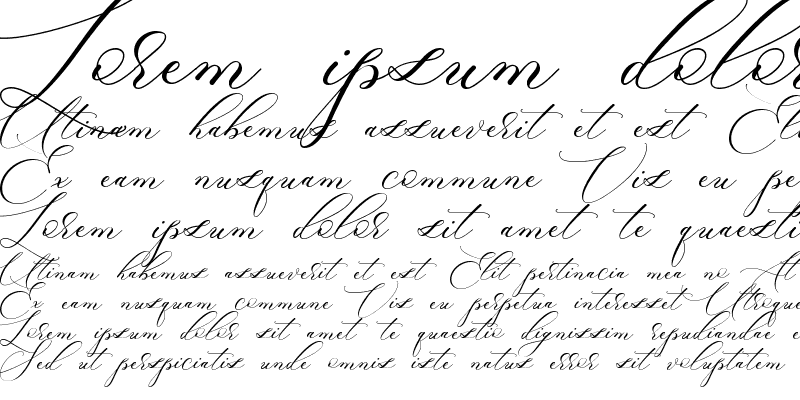 Lorem ipsum dolor
Utinam habemus assueverit et est
Ex eam nusquam commune Vis eu
Lorem ipsum dolor sit amet te
Utinam habemus assueverit et est Elit pertinacia mea no At
Ex eam nusquam commune Vis eu perpetua interesset Utroque
Lorem ipsum dolor sit amet te quaestio dignissim repudiandae
Sed ut perspiciatis unde omnis iste natus error sit voluptatem